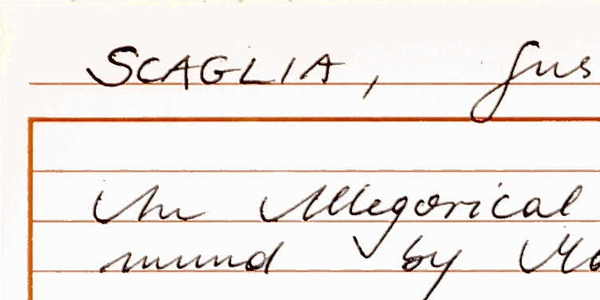 SCAGLIA, Gus
An Allegorical
by